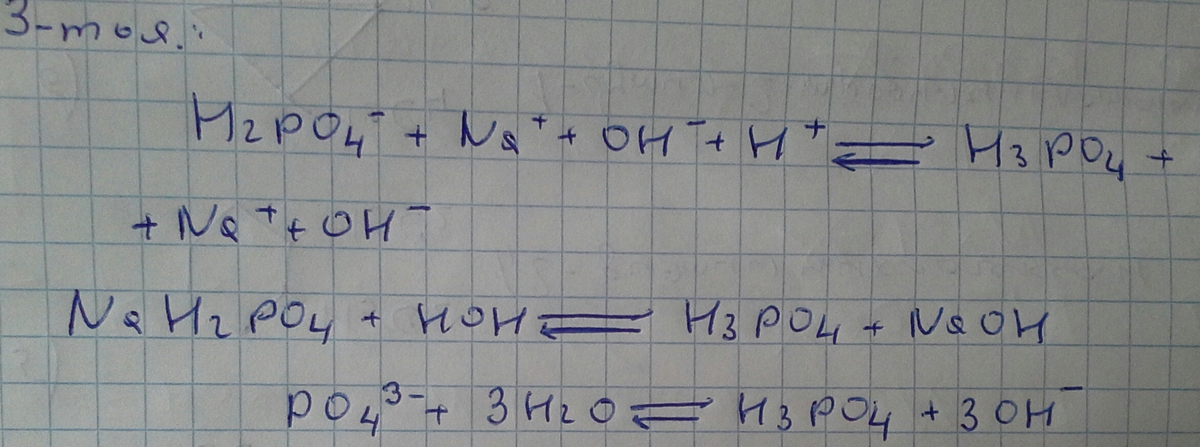 3-тоя.:
H₂PO₄⁻ + Na⁺ + OH⁻ + H⁺ ⇌ H₃PO₄ +
+ Na⁺ + OH⁻
NaH₂PO₄ + HOH ⇌ H₃PO₄ + NaOH
PO₄³⁻ + 3H₂O ⇌ H₃PO₄ + 3OH⁻